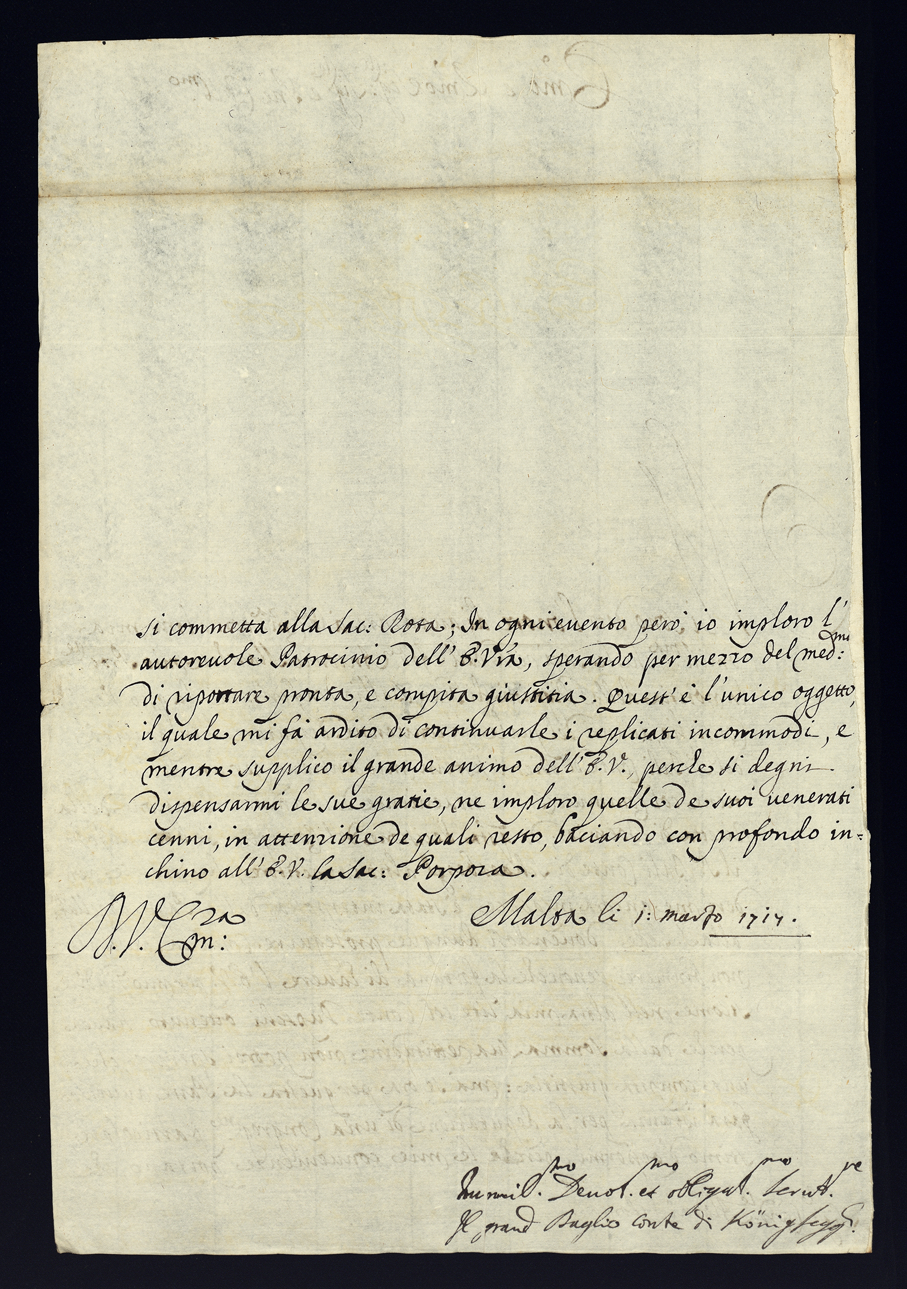 si commetta alla Sac: Rota; In ogni evento però io imploro l'
autorevole Patrocinio dell' E. Vra, sperando per mezzo del med:mo
di riportare pronta, e compita giustitia. Quest' è l'unico oggetto,
il quale mi fà ardito di continuarle i replicati incommodi, e
mentre supplico il grande animo dell' E.V., perche si degni
dispensarmi le sue gratie, ne imploro quelle de suoi venerati
cenni, in attenzione de quali resto, baciando con profondo in=
chino all' E.V. la Sac: Porpora.
Malta li 1: marzo 1717.
V. Em:za
Humil.mo Devot.mo et obligat.mo Servit.re
Il grand Baglio conte di Königsegg